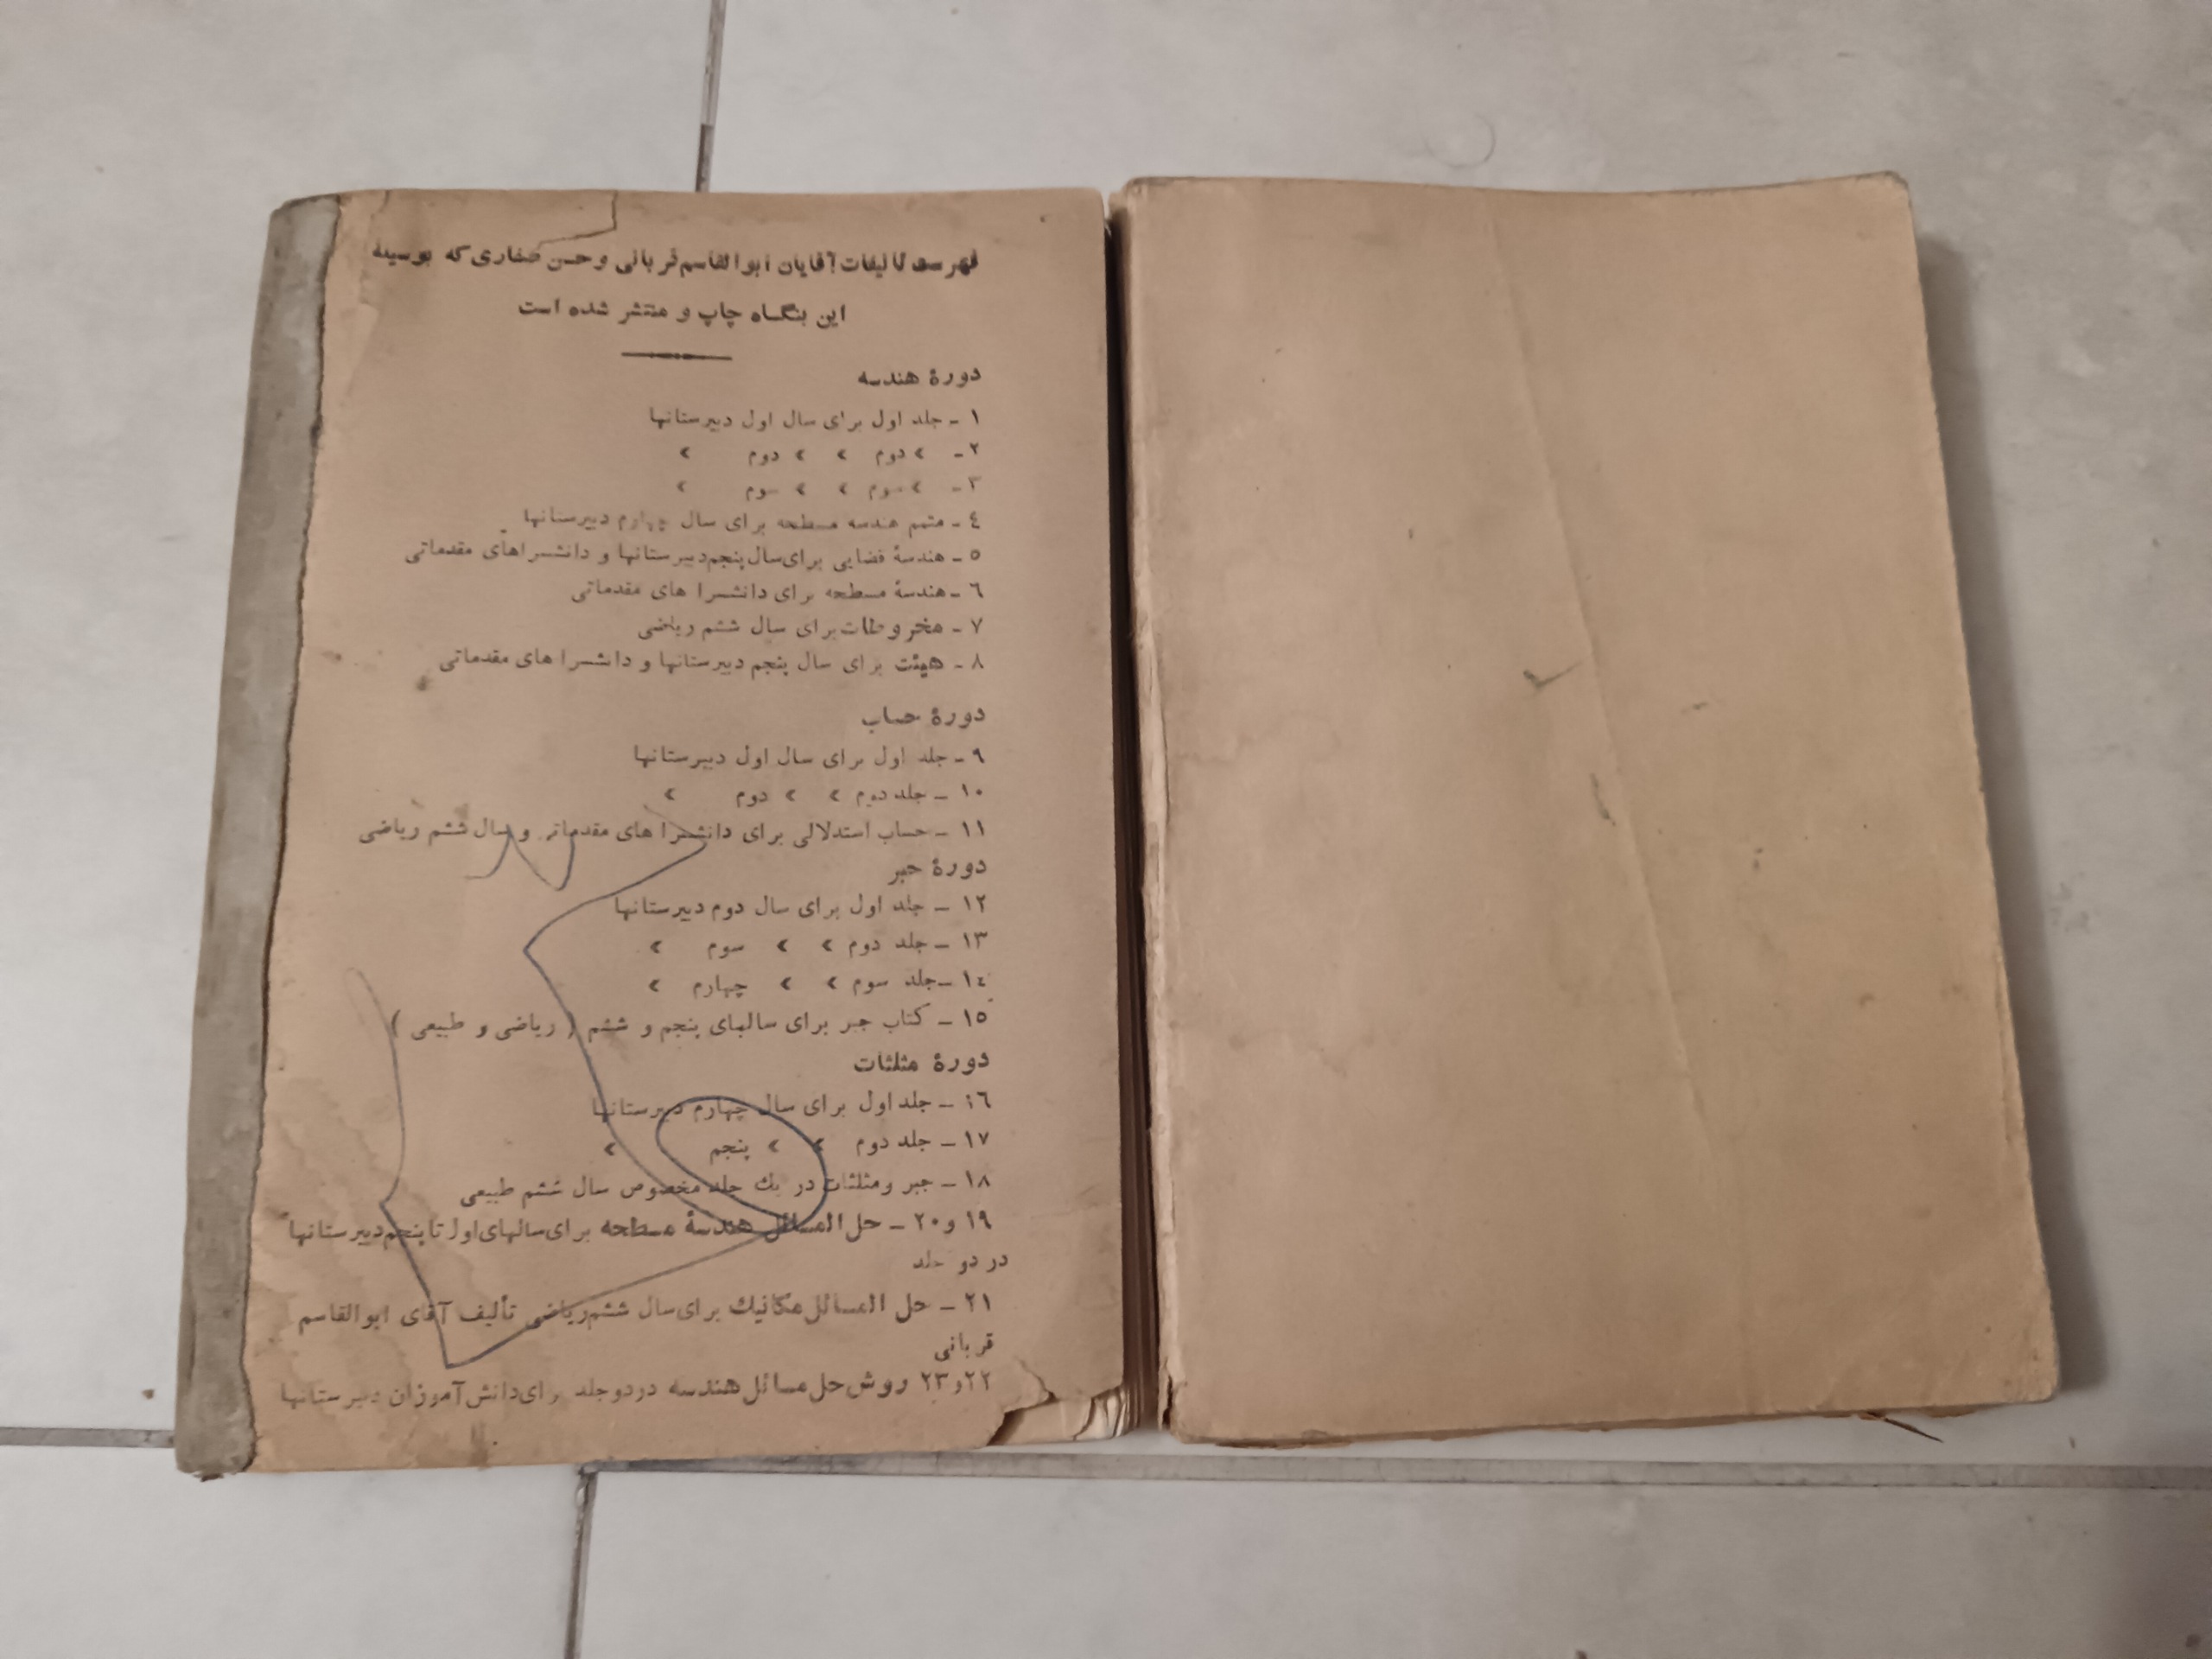 فهرست تألیفات آقایان ابوالقاسم قربانی و حسن صفاری که بوسیله
این بنگاه چاپ و منتشر شده است
دورهٔ هندسه
۱ ـ جلد اول برای سال اول دبیرستانها
۲ ـ » دوم » » دوم »
۳ ـ » سوم » » سوم »
٤ ـ متمم هندسه مسطحه برای سال چهارم دبیرستانها
٥ ـ هندسهٔ فضایی برای سال پنجم دبیرستانها و دانشسراهای مقدماتی
٦ ـ هندسهٔ مسطحه برای دانشسرا های مقدماتی
۷ ـ مخروطات برای سال ششم ریاضی
۸ ـ هیئت برای سال پنجم دبیرستانها و دانشسرا های مقدماتی
دورهٔ حساب
۹ ـ جلد اول برای سال اول دبیرستانها
۱۰ ـ جلد دوم » » دوم »
۱۱ ـ حساب استدلالی برای دانشسرا های مقدماتی و سال ششم ریاضی
دورهٔ جبر
۱۲ ـ جلد اول برای سال دوم دبیرستانها
۱۳ ـ جلد دوم » » سوم »
۱٤ ـ جلد سوم » » چهارم »
۱٥ ـ کتاب جبر برای سالهای پنجم و ششم ( ریاضی و طبیعی )
دورهٔ مثلثات
۱٦ ـ جلد اول برای سال چهارم دبیرستانها
۱۷ ـ جلد دوم » » پنجم »
۱۸ ـ جبر و مثلثات در یك جلد مخصوص سال ششم طبیعی
۱۹ و ۲۰ ـ حل المسائل هندسهٔ مسطحه برای سالهای اول تا پنجم دبیرستانها
در دو جلد
۲۱ ـ حل المسائل مکانیك برای سال ششم ریاضی تألیف آقای ابوالقاسم
قربانی
۲۲و۲۳ روش حل مسائل هندسه در دو جلد برای دانش آموزان دبیرستانها